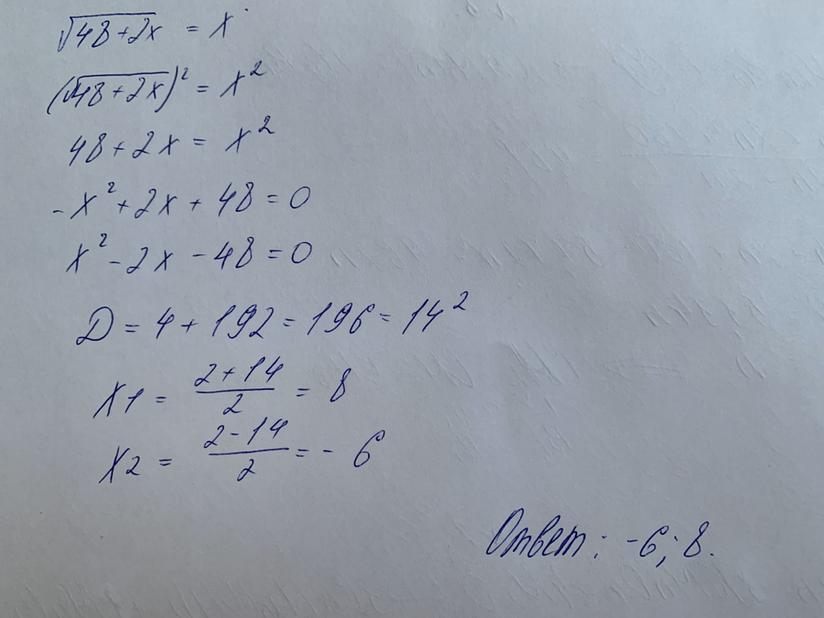 √48+2x = x
(√48+2x)² = x²
48+2x = x²
-x²+2x+48=0
x²-2x-48=0
D=4+192=196=14²
x1 = (2+14)/2 = 8
x2 = (2-14)/2 = -6
Ответ: -6; 8.